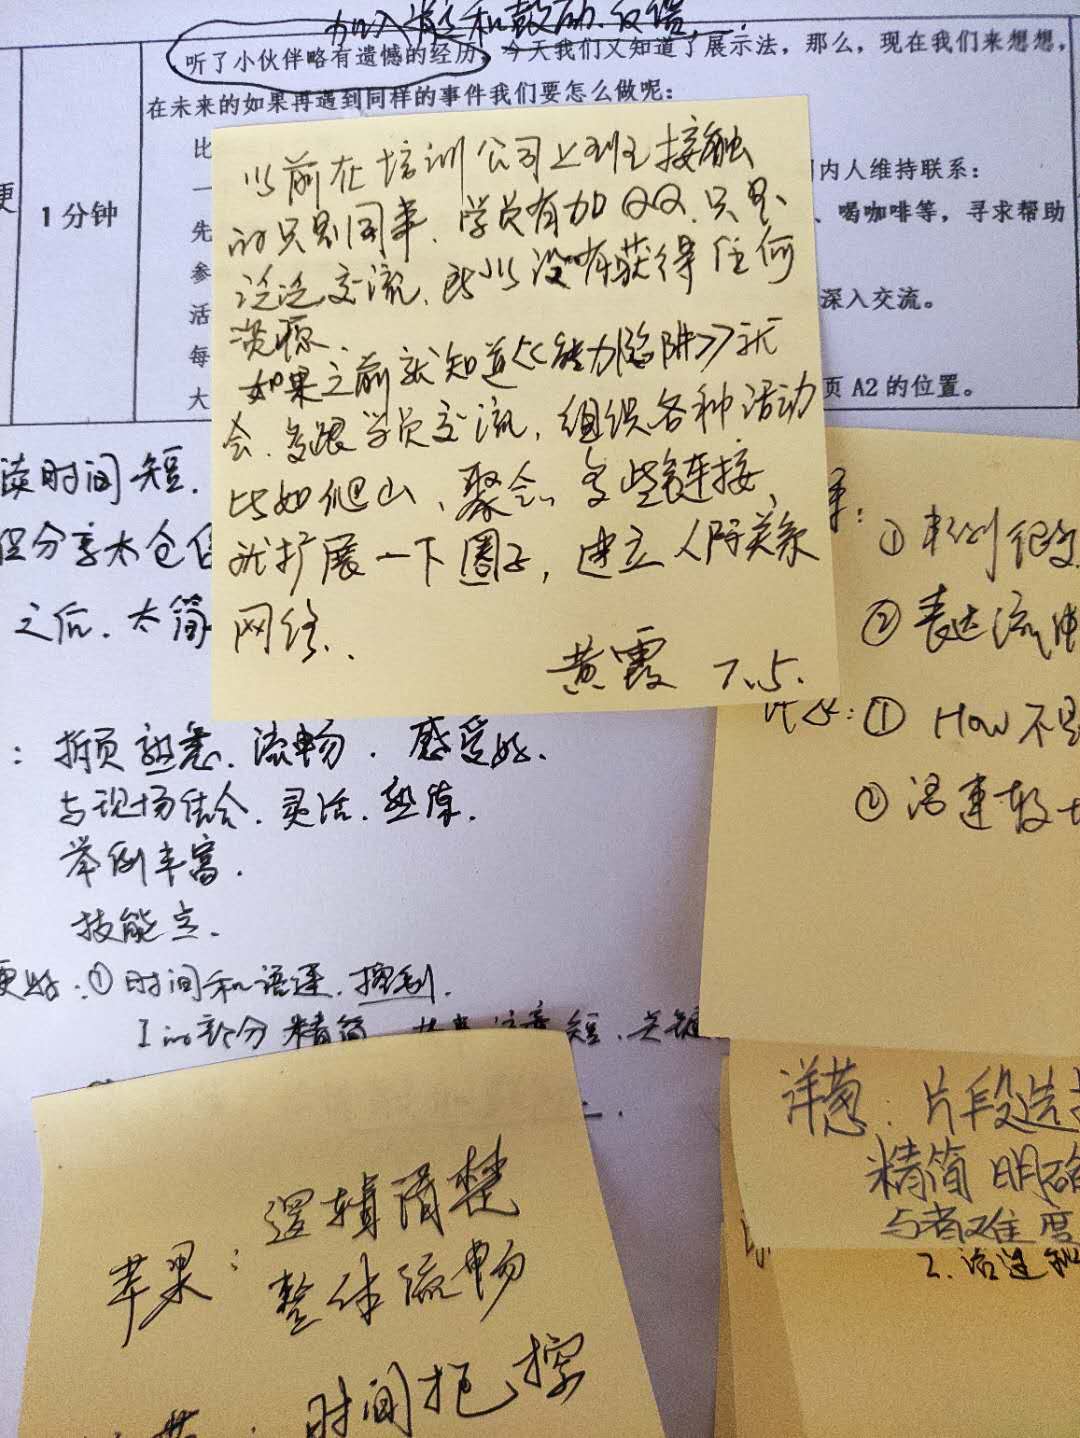 加入肯定和鼓励、反馈
听了小伙伴略有遗憾的经历,今天我们又知道了展示法,那么,现在我们来想想,
在未来的如果再遇到同样的事件我们要怎么做呢:
比
内人维持联系:
1 分钟
先
、喝咖啡等,寻求帮助
参
活
深入交流。
每
大
页 A2 的位置。
以前在培训公司上班接触
的只是同事、学员有加QQ、只是
泛泛交流、所以没有获得任何
资源、
如果之前就知道《能力陷阱》就
会、多跟学员交流,组织各种活动
比如爬山、聚会、多些链接、
就扩展一下圈子,建立人际关系
网络..
黄霞 7.5.
读时间短、
但分享太仓促
之后、太简
: 拆页熟悉、流畅、感受好、
与现场结合、灵活、熟练、
举例丰富、
技能点、
更好:①时间和语速、控制、
I的部分精简
短、关键
苹果:
①
②表达流
①How不
②语速较
洋葱:片段选择
精简 明确
难度
2.语速
苹果:逻辑清楚
整体流畅
时间把控